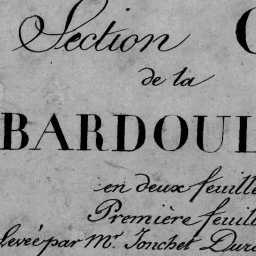 Section C
de la
BARDOUL
en deux feuille
Première feuil
levée par Mr. Jonchet Dur